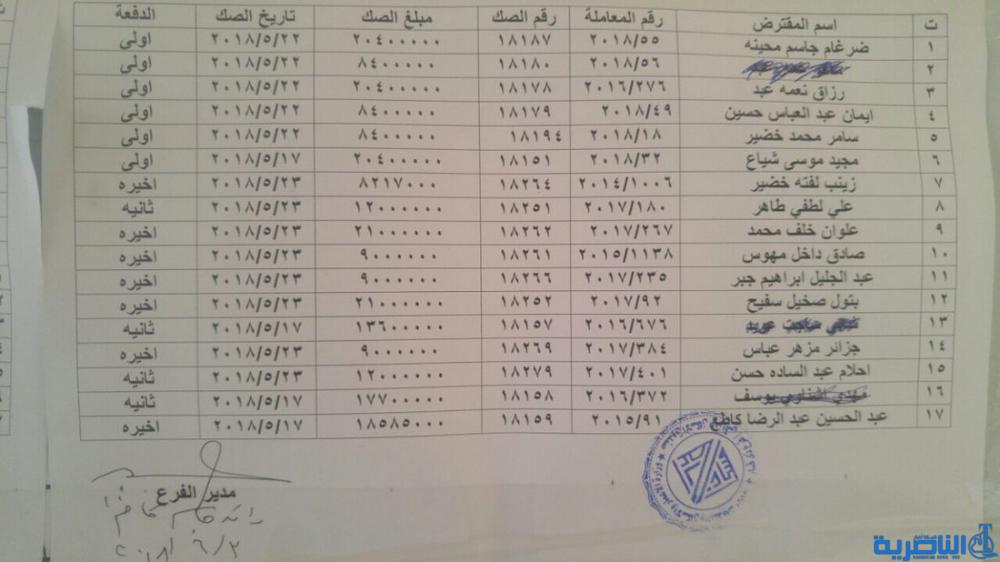 ت اسم المقترض رقم المعاملة رقم الصك مبلغ الصك تاريخ الصك الدفعة
١ ضرغام جاسم محينه ٢٠١٨/٥٥ ١٨١٨٧ ٢٠٤٠٠٠٠٠ ٢٠١٨/٥/٢٢ اولى
٢ ٢٠١٨/٥٦ ١٨١٨٠ ٨٤٠٠٠٠٠ ٢٠١٨/٥/٢٢ اولى
٣ رزاق نعمه عبد ٢٠١٦/٢٧٦ ١٨١٧٨ ٢٠٤٠٠٠٠٠ ٢٠١٨/٥/٢٢ اولى
٤ ايمان عبد العباس حسين ٢٠١٨/٤٩ ١٨١٧٩ ٨٤٠٠٠٠٠ ٢٠١٨/٥/٢٢ اولى
٥ سامر محمد خضير ٢٠١٨/١٨ ١٨١٩٤ ٨٤٠٠٠٠٠ ٢٠١٨/٥/٢٢ اولى
٦ مجيد موسى شياع ٢٠١٨/٣٢ ١٨١٥١ ٢٠٤٠٠٠٠٠ ٢٠١٨/٥/١٧ اولى
٧ زينب لفته خضير ٢٠١٤/١٠٠٦ ١٨٢٦٤ ٨٢١٧٠٠٠ ٢٠١٨/٥/٢٣ اخيره
٨ علي لطفي طاهر ٢٠١٧/١٨٠ ١٨٢٥١ ١٢٠٠٠٠٠٠ ٢٠١٨/٥/٢٣ ثانيه
٩ علوان خلف محمد ٢٠١٧/٢٦٧ ١٨٢٦٢ ٢١٠٠٠٠٠٠ ٢٠١٨/٥/٢٣ اخيره
١٠ صادق داخل مهوس ٢٠١٥/١١٣٨ ١٨٢٦١ ٩٠٠٠٠٠٠ ٢٠١٨/٥/٢٣ اخيره
١١ عبد الجليل ابراهيم جبر ٢٠١٧/٢٣٥ ١٨٢٦٦ ٩٠٠٠٠٠٠ ٢٠١٨/٥/٢٣ اخيره
١٢ بتول صخيل سفيح ٢٠١٧/٩٢ ١٨٢٥٢ ٢١٠٠٠٠٠٠ ٢٠١٨/٥/٢٣ اخيره
١٣ ٢٠١٦/٦٧٦ ١٨١٥٧ ١٣٦٠٠٠٠٠ ٢٠١٨/٥/١٧ ثانيه
١٤ جزائر مزهر عباس ٢٠١٧/٣٨٤ ١٨٢٦٩ ٩٠٠٠٠٠٠ ٢٠١٨/٥/٢٣ اخيره
١٥ احلام عبد الساده حسن ٢٠١٧/٤٠١ ١٨٢٧٩ ١٢٠٠٠٠٠٠ ٢٠١٨/٥/٢٣ ثانيه
١٦ يوسف ٢٠١٦/٣٧٢ ١٨١٥٨ ١٧٧٠٠٠٠٠ ٢٠١٨/٥/١٧ ثانيه
١٧ عبد الحسين عبد الرضا كاطع ٢٠١٥/٩١ ١٨١٥٩ ١٨٥٨٥٠٠٠ ٢٠١٨/٥/١٧ اخيره
مدير الفرع
الناصرية